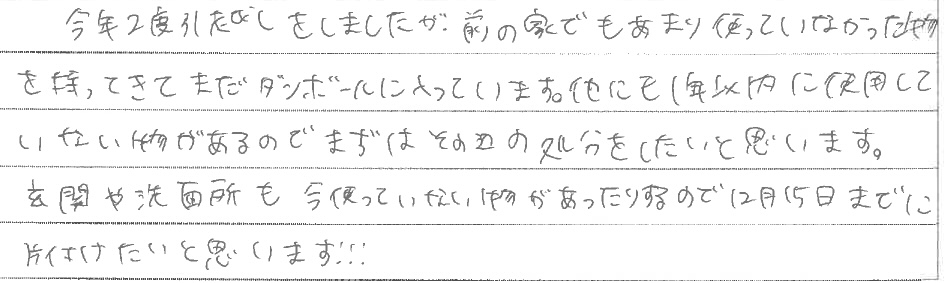 今年2度引たびしをしましたが、前の家でもあまり使っていなかった物
を持ってきてまだダンボールに入っています。他にも1年以内に使用して
いない物があるのでまずはその辺の処分をしたいと思います。
玄関や洗面所も今使っていない物があったりするので12月15日までに
片付けたいと思います!!!